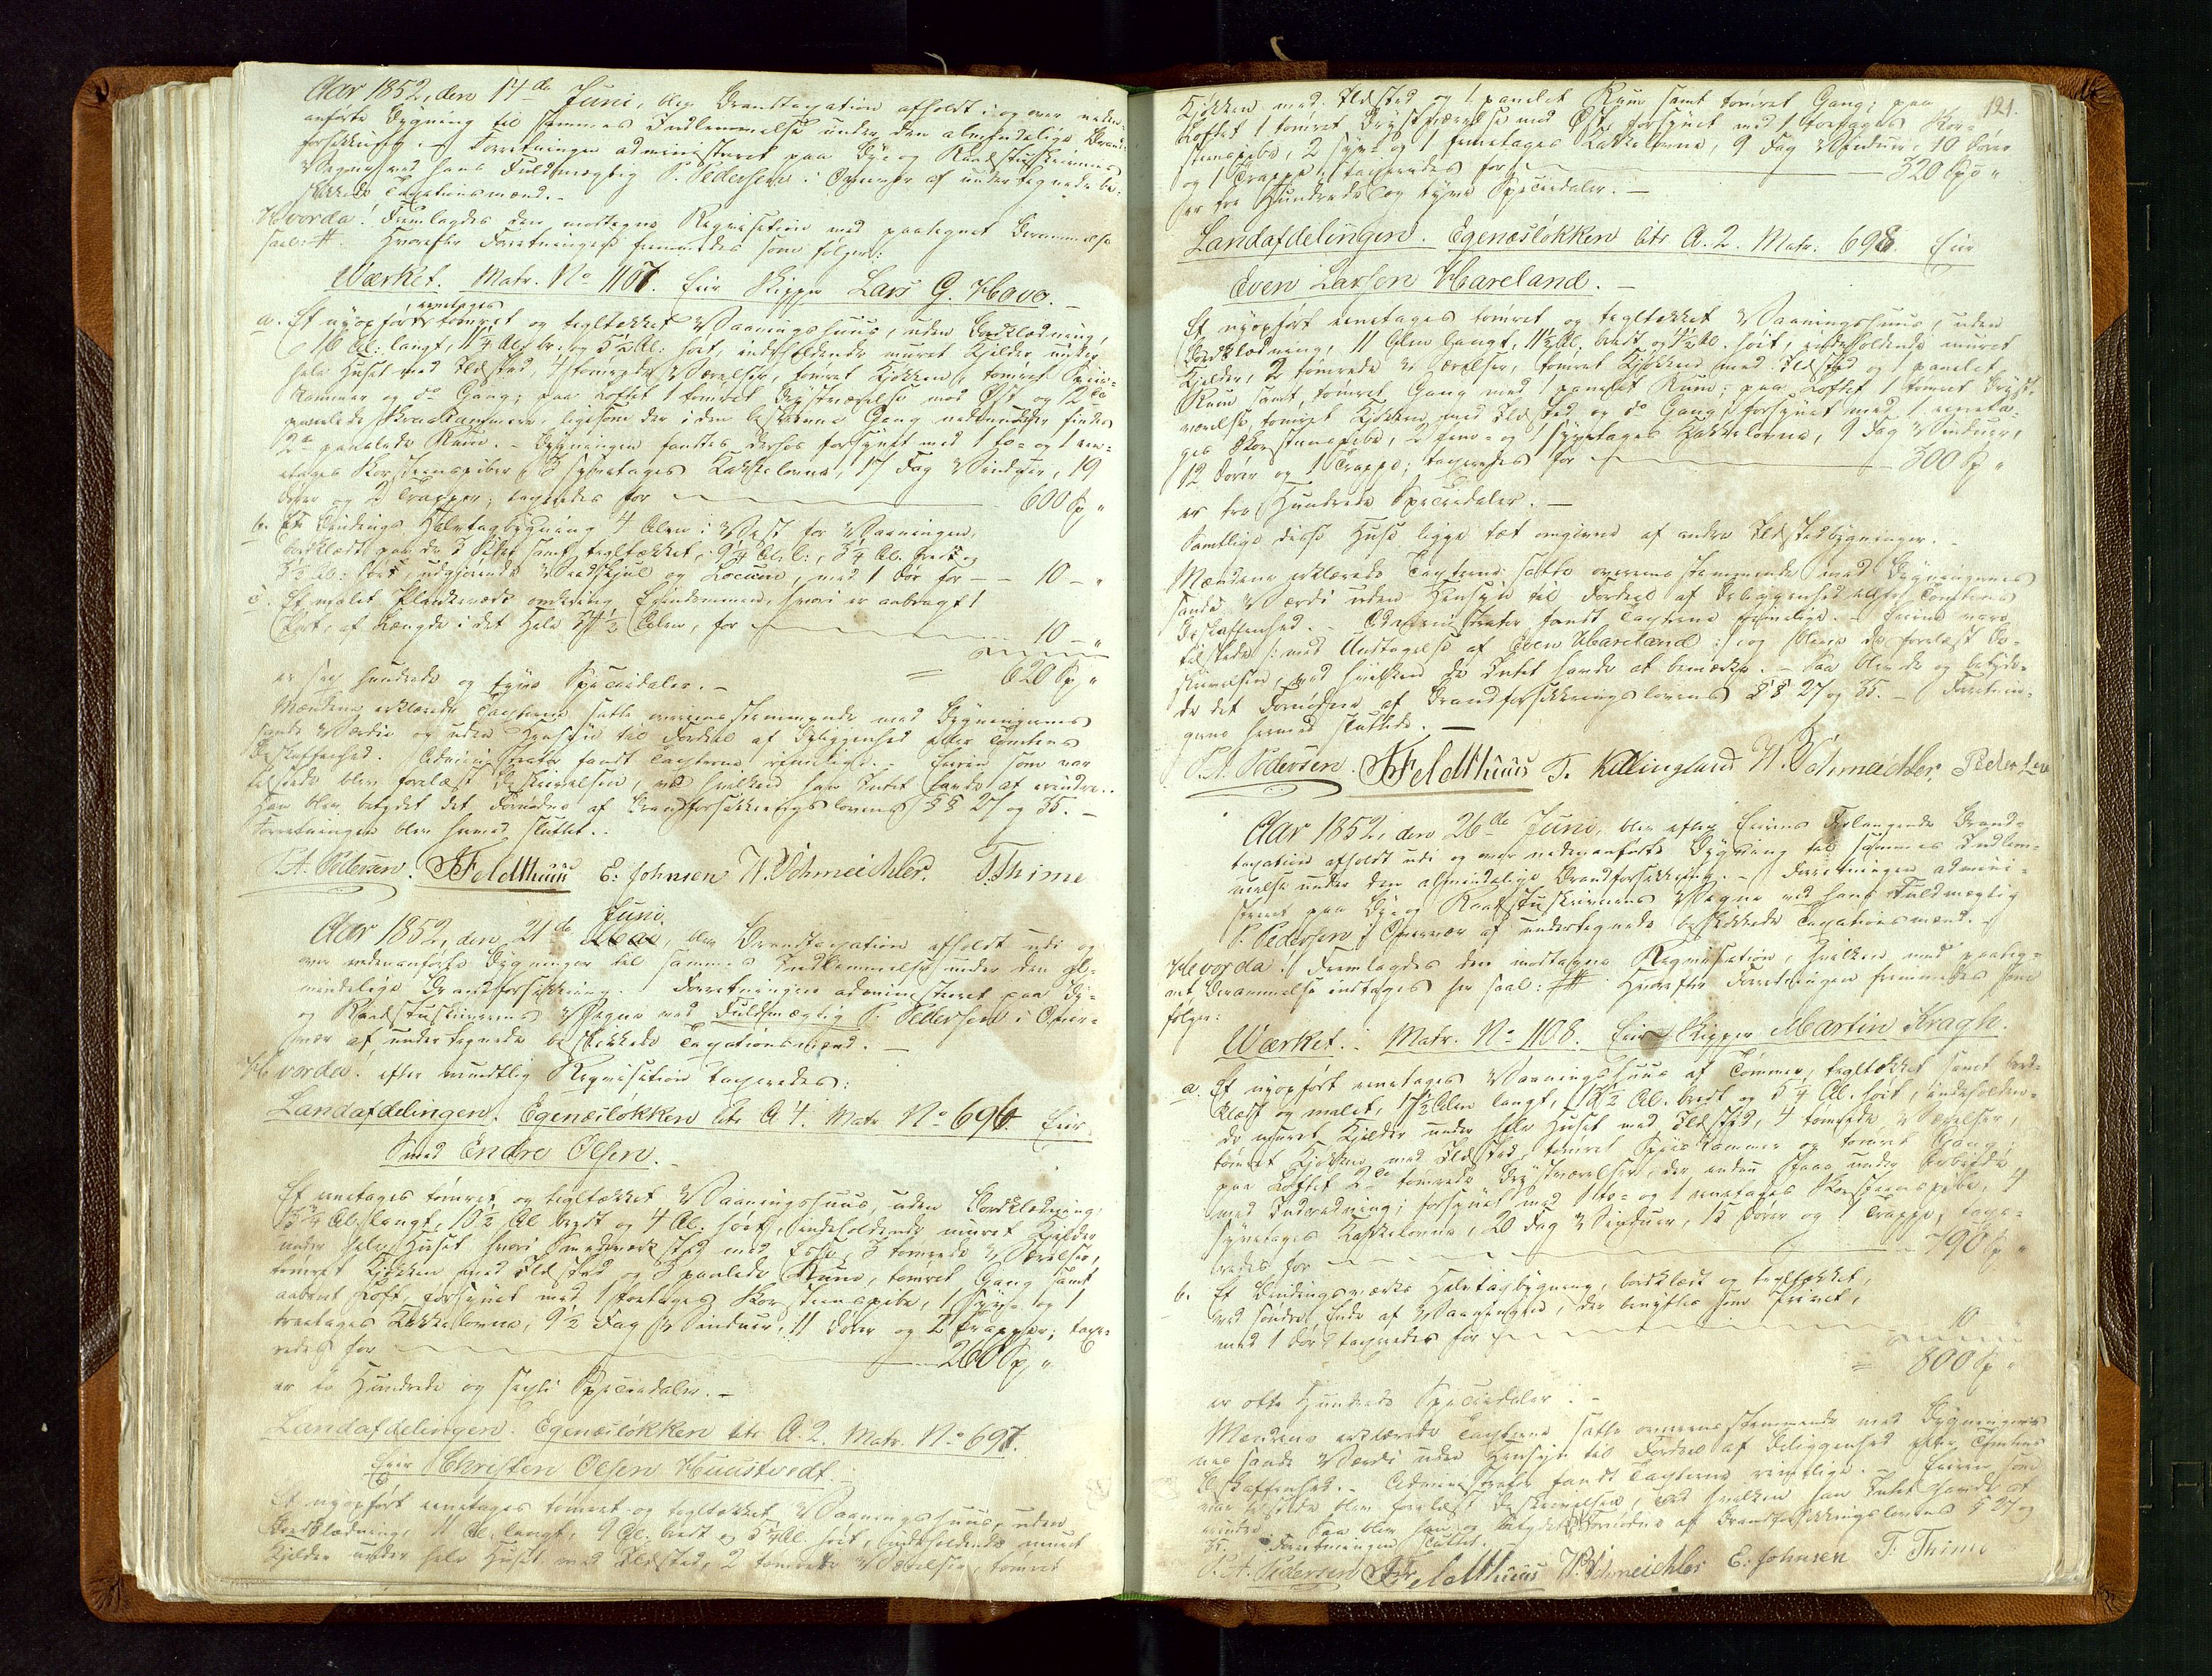 Aar 1852, den 14de Juni, blev Brandtaxation afholdt i og over neden-
anførte Bygning til sammes Indlemmelse under den almindelige Brand-
forsikkring. Forretningen administreret paa Bye og Raadstueskriverens
Vegne ved hans Fuldmægtig P. Pedersen i Overvær af undertegnede be-
skikkede Taxationsmænd.-
Hvorda! Fremlagdes den modtagne Reqvisition med paategnet Berammelse
saal: #. Hvorefter Forretningen fremmedes som følger:
Værket. Matr. No 1107. Eier Skipper Lars G. Hove.-
eenetages
a. Et nyopført tømret og tegltækket Vaaningshuus, uden Bordklædning,
16 Al: langt, 11¼ Al: br: og 5½ Al: høit, indeholdende muret Kjelder under
hele Huset med Ildsted, 4 tømrede Værelser, tømret Kjøkken, tømret Spiis-
kammer og do Gang; paa Loftet 1 tømret Qvistværelse mod Øst og 2de
panelede Skraakammere, ligesom der i den beskrevne Gang nedenunder findes
2de panelede Rum.- Bygningen fandtes derhos forsynet med 1 to- og 1 een-
etages Korsteenspiber, 3 syvetages Kakkelovne, 17 Fag Vinduer, 19
Dører og 2 Trapper; taxeredes for 600 Sp "
b. Et Bindings Halvtagbygning 4 Alen i Vest for Vaaningen,
bordklædt paa de 3 Sider samt tegltækket, 9¼ Al: l:, 3¼ Al. bredt og
3½ Al: høit, udgjørende Vedskjul og Locum, med 1 Dør for - - 10 - "
c. Et malet Plankeværk omkring Eiendommen, hvori er anbragt 1
Port, af Længde i det Hele 34½ Alen, for 10 - "
= 620 Sp "
er sex hundrede og tyve Speciedaler.-
Mændene erklærede Taxterne satte overeensstemmende med Bygningernes
sande Værdie og uden Hensyn til Fordeel af Beliggenhed eller Tomtens
Beskaffenhed. Administrator fandt Taxterne rimelige.- Eieren som var
tilstede blev forelæst Beskrivelsen, ved hvilken han Intet havde at erindre.
Han blev betydet det Fornødne af Brandforsikkringslovens §§ 27 og 35.-
Forretningen blev hermed sluttet.-
P.A. Pedersen. FFeldthuus E: Johnsen W. Schmeichler. T. Thime
Juni
Aar 1852, den 21de Mai, blev Brandtaxation afholdt udi og
over nedenanførte Bygninger til sammes Indlemmelse under den al-
mindelige Brandforsikkring. Forretningen administreret paa By-
og Raadstueskriverens Vegne ved Fuldmægtig P. Pedersen i Over-
vær af undertegnede beskikkede Taxationsmænd.-
Hvorda! efter mundtlig Reqvisition taxeredes:
Landafdelingen. Egenæsløkken litr A. 4. Matr. No 696 Eier
Smed Endre Olsen.-
Et eenetages tømret og tegltækket Vaaningshuus, uden Bordklædning,
Al. langt, 10½ Al. bredt og 4 Al. høit, indeholdende muret Kjelder
under hele Huset hvori Smedværksted med Esse, 3 tømrede Værelser,
tømret Kjøkken med Ildsted og 3 panlede Rum, tømret Gang samt
aabent Loft, forsynet med 1 toetages Korsteenspibe, 1 syv- og 1
treetages Kakkelovne, 9½ Fag Vinduer, 11 Dører og 2 Trapper; taxe-
redes for 260 Sp "
er to Hundrede og sexti Speciedaler.-
Landafdelingen. Egenæsløkken litr A. 2. Matr. No 697.
Eier Christen Olsen Huustvedt.-
Et nyopført eenetages tømret og tegltækket Vaaningshuus, uden
Bordklædning, 11 Al. langt, 9 Al. bredt og Al. høit, indeholdende muret
Kjelder under hele Huset med Ildsted, 2 tømrede Værelser, tømret
121.
Kjøkken med Ildsted og 1 panelet Rum samt tømret Gang; paa
Loftet 1 tømret Qvistværelse mod Øst, forsynet med 1 toetages Kor-
steenspibe, 2 syv- og 1 femetages Kakkelovne, 9 Fag Vinduer, 10 Dører
og 1 Trappe; taxeredes for 320 Sp "
er tre Hundrede og tyve Speciedaler.-
Landafdelingen. Egenæsløkken litr A. 2. Matr. 698. Eier
Even Larsen Hareland.-
Et nyopført eenetages tømret og tegltækket Vaaningshuus, uden
Bordklædning, 11 Alen langt, 11½ Al. bredt og 4½ Al. høit, indeholdende muret
Kjelder, 2 tømrede Værelser, tømret Kjøkken med Ildsted og 1 panelet
Rum samt, tømret Gang med 1 panelet Rum; paa Loftet 1 tømret Qvist-
værelse, tømret Kjøkken med Ildsted og do Gang; forsynet med 1 eeneta-
ges Skorsteenspibe, 2 fem- og 1 syvetages Kakkelovne, 9 Fag Vinduer,
12 Dører og 1 Trappe; taxeredes for 300 Sp "
er tre Hundrede Speciedaler.-
Samtlige disse Huse ligge tæt omgivne af andre Ildstedbygninger.-
Mændene erklærede Taxterne satte overeensstemmende med Bygningernes
sande Værdi uden Hensyn til Fordeel af Beliggenhed eller Tomternes
Beskaffenhed.- Administrator fandt Taxterne rimelige.- Eierne vare
tilstede : med Undtagelse af Even Hareland : og bleve de forelæst Be-
skrivelsen, ved hvilken de Intet havde at bemærke.- Saa bleve de og betyde-
de det Fornødne af Brandforsikkringslovens §§ 27 og 35.- Forretnin-
gerne hermed sluttede.-
P.A. Pedersen. FFeldthuus T. Kallingland W. Schmeichler. Peder
Aar 1852, den 26de Juni, blev efter Eierens Forlangende Brand-
taxation afholdt udi og over nedenanførte Bygning til sammes Indlem-
melse under den almindelige Brandforsikkring.- Forretningen admini-
streret paa Bye og Raadstueskriverens Vegne ved hans Fuldmægtig
P. Pedersen i Overvær af undertegnede beskikkede Taxationsmænd.-
Hvorda! Fremlagdes den modtagne Reqvisition, hvilken med paateg-
net Berammelse indtages her saal: ## Hvorefter Forretningen fremmedes som
følger:
Værket. Matr. No 1108. Eier Skipper Martin Kragh.
a. Et nyopført eenetages Vaaningshuus af Tømmer, tegltækket samt bord-
klædt og malet, Alen langt, Al. bredt og 5¼ Al. høit, indeholden-
de muret Kjelder under hele Huset med Ildsted, 4 tømrede Værelser,
tømret Kjøkken med Ildsted, tømret Spiiskammer og tømret Gang;
paa Loftet 2de tømrede Qvistværelser, der endnu staae under Arbeide
med Indredning; forsynet med 1 to- og 1 eenetages Skorsteenspibe, 4
syvetages Kakkelovne, 20 Fag Vinduer, 15 Dører og 1 Trappe, taxe-
redes for 790 Sp "
b. Et Bindingsværks Halvtagbygning, bordklædt og tegltækket,
ved søndre Ende af Vaaningen, der benyttes som Privet,
med 1 Dør, taxeredes for 10
= 800 Sp "
er otte Hundrede Speciedaler.-
Mændene erklærede Taxterne satte overeensstemmende med Bygninger-
nes sande Værdi uden Hensyn til Fordeel af Beliggenhed eller Tomtens
Beskaffenhed.- Administrator fandt Taxterne rimelige.- Eieren som
var tilstede blev forelæst Beskrivelsen, ved hvilken han Intet havde at
erindre.- Saa blev han og betydet Fornødne af Brandforsikkringslovens § 27 og
35. Forretningen sluttet.
P.A. Pedersen FFeldthuus W. Schmeichler E: Johnsen T. Thime